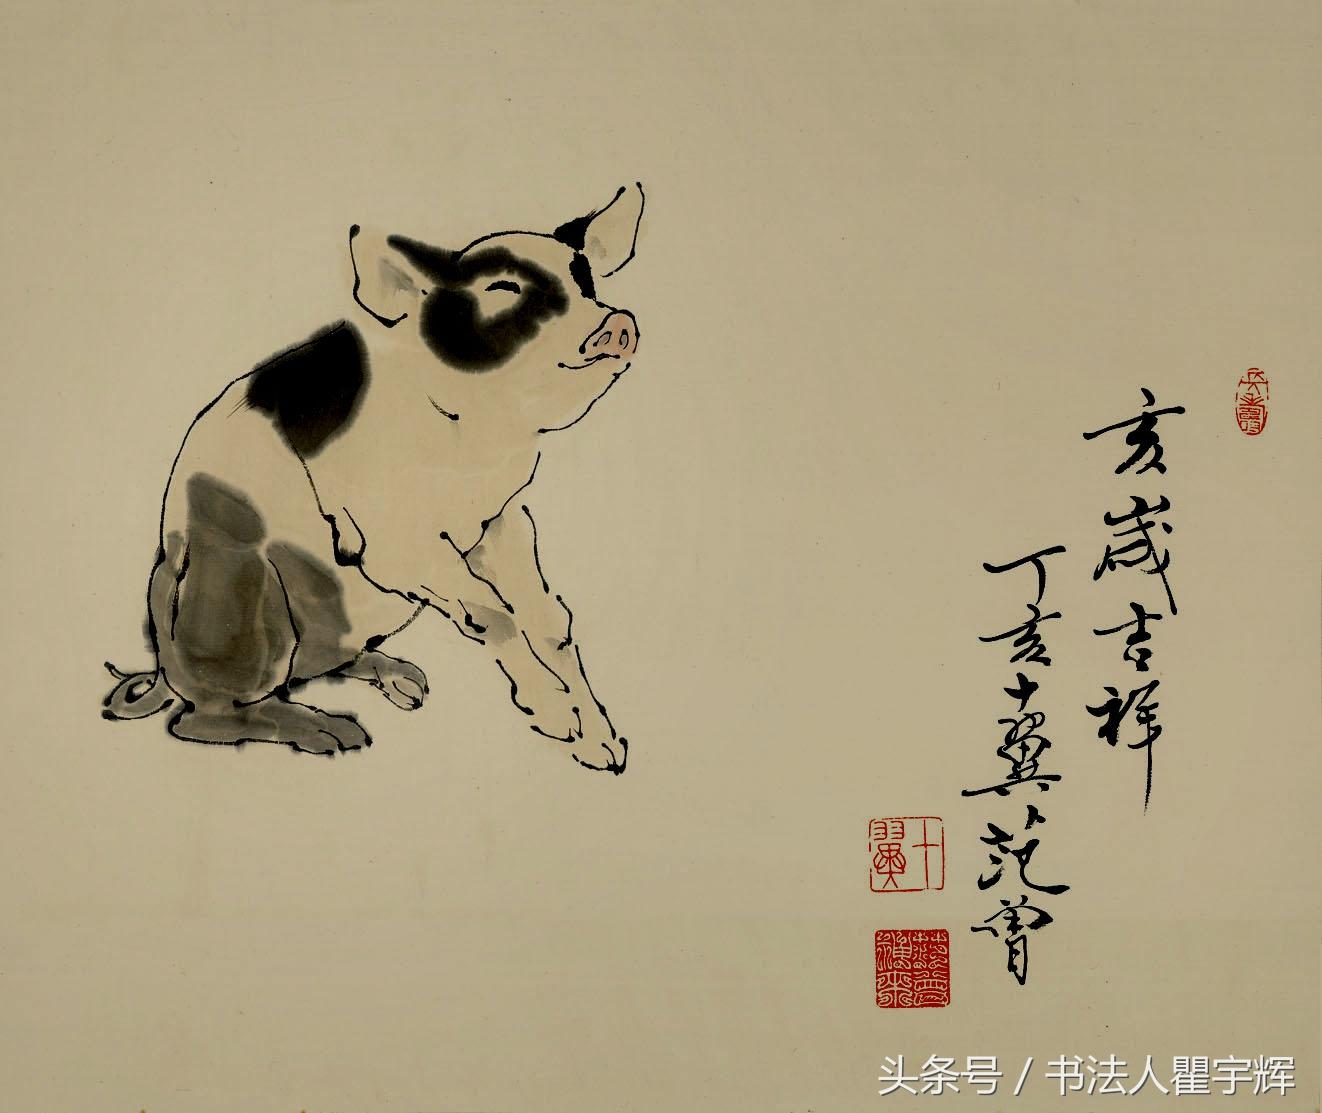 亥歲吉祥
丁亥十翼范曾
十翼
头条号 / 书法人瞿宇辉